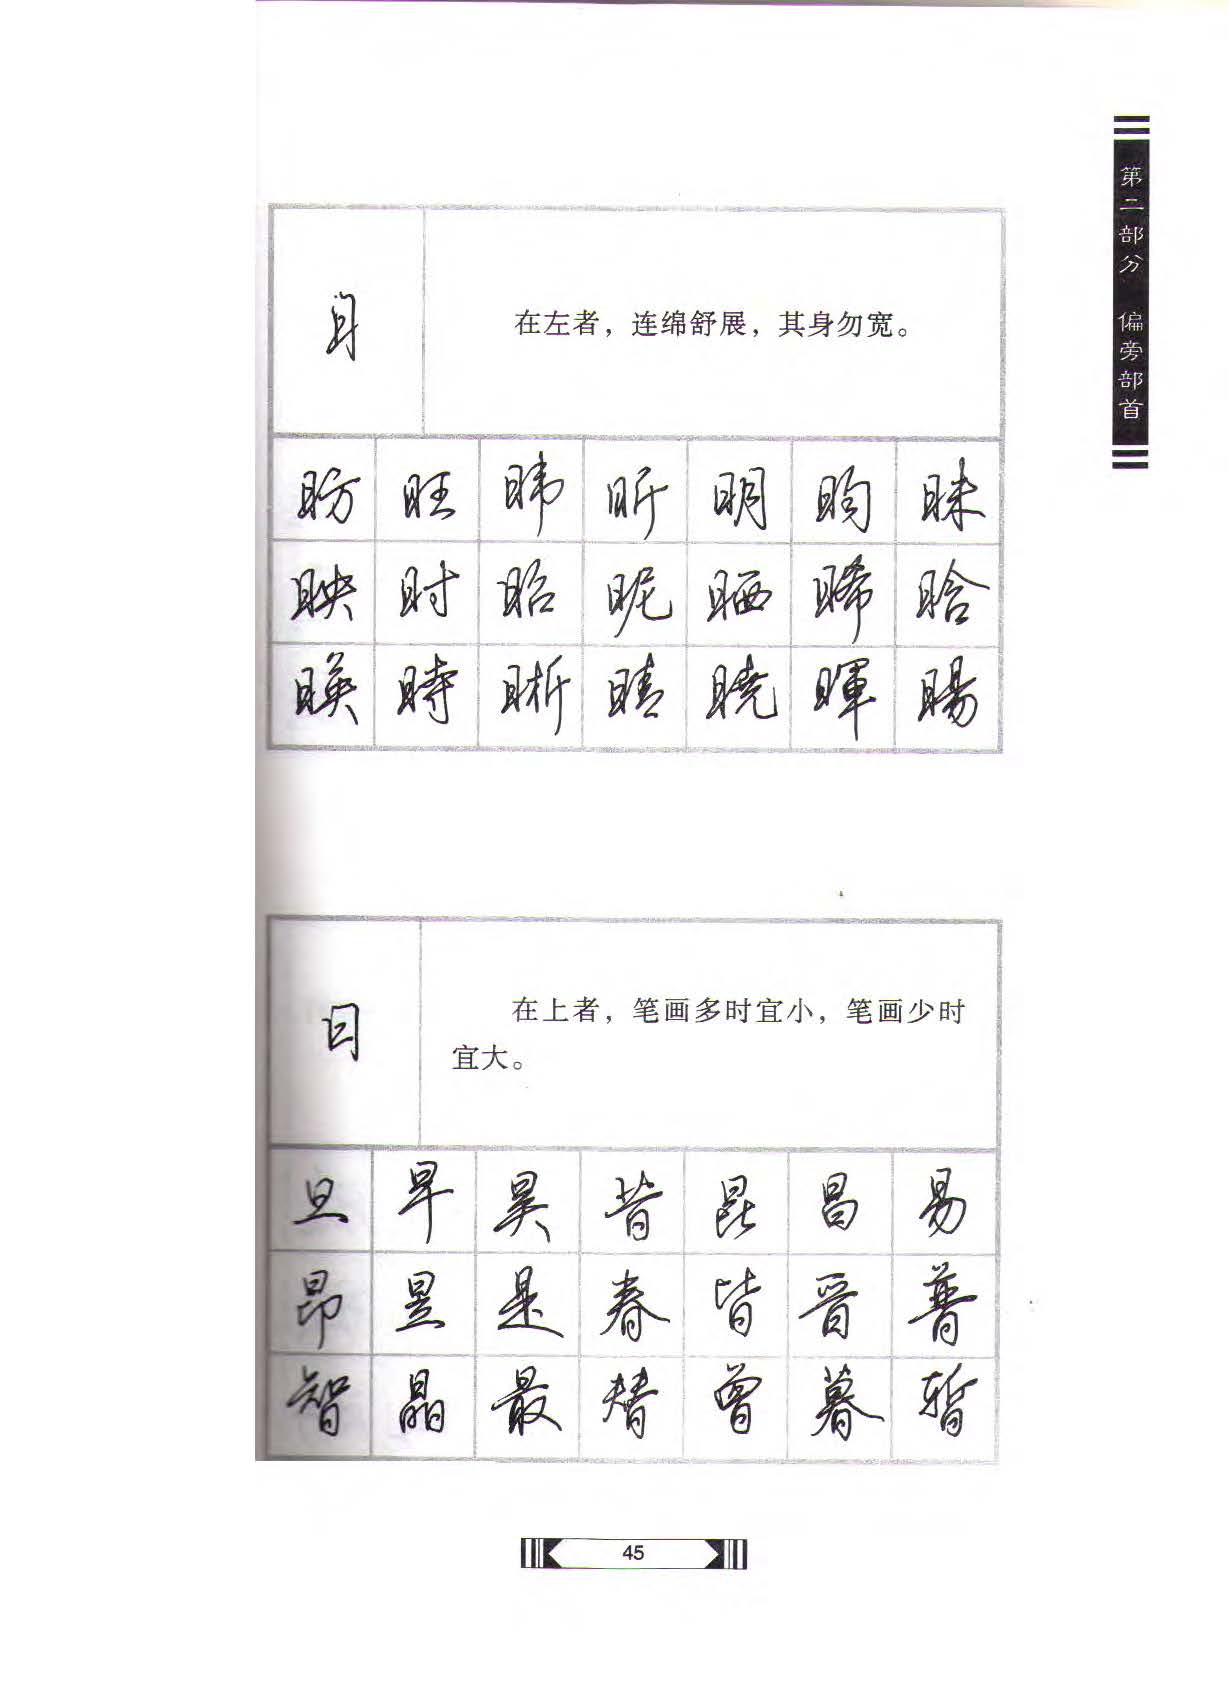 第二部分 偏旁部首
日
在左者，连绵舒展，其身勿宽。
昉 旺 昕 明 昀 昧
映 时 昭 昵 晒 晞 晗
暎 時 晰 晴 曉 暉 暘
日
在上者，笔画多时宜小，笔画少时
宜大。
旦 早 昊 昔 昆 昌 易
昂 昱 是 春 皆 晋 普
智 晶 最 替 曾 暮 暂
45